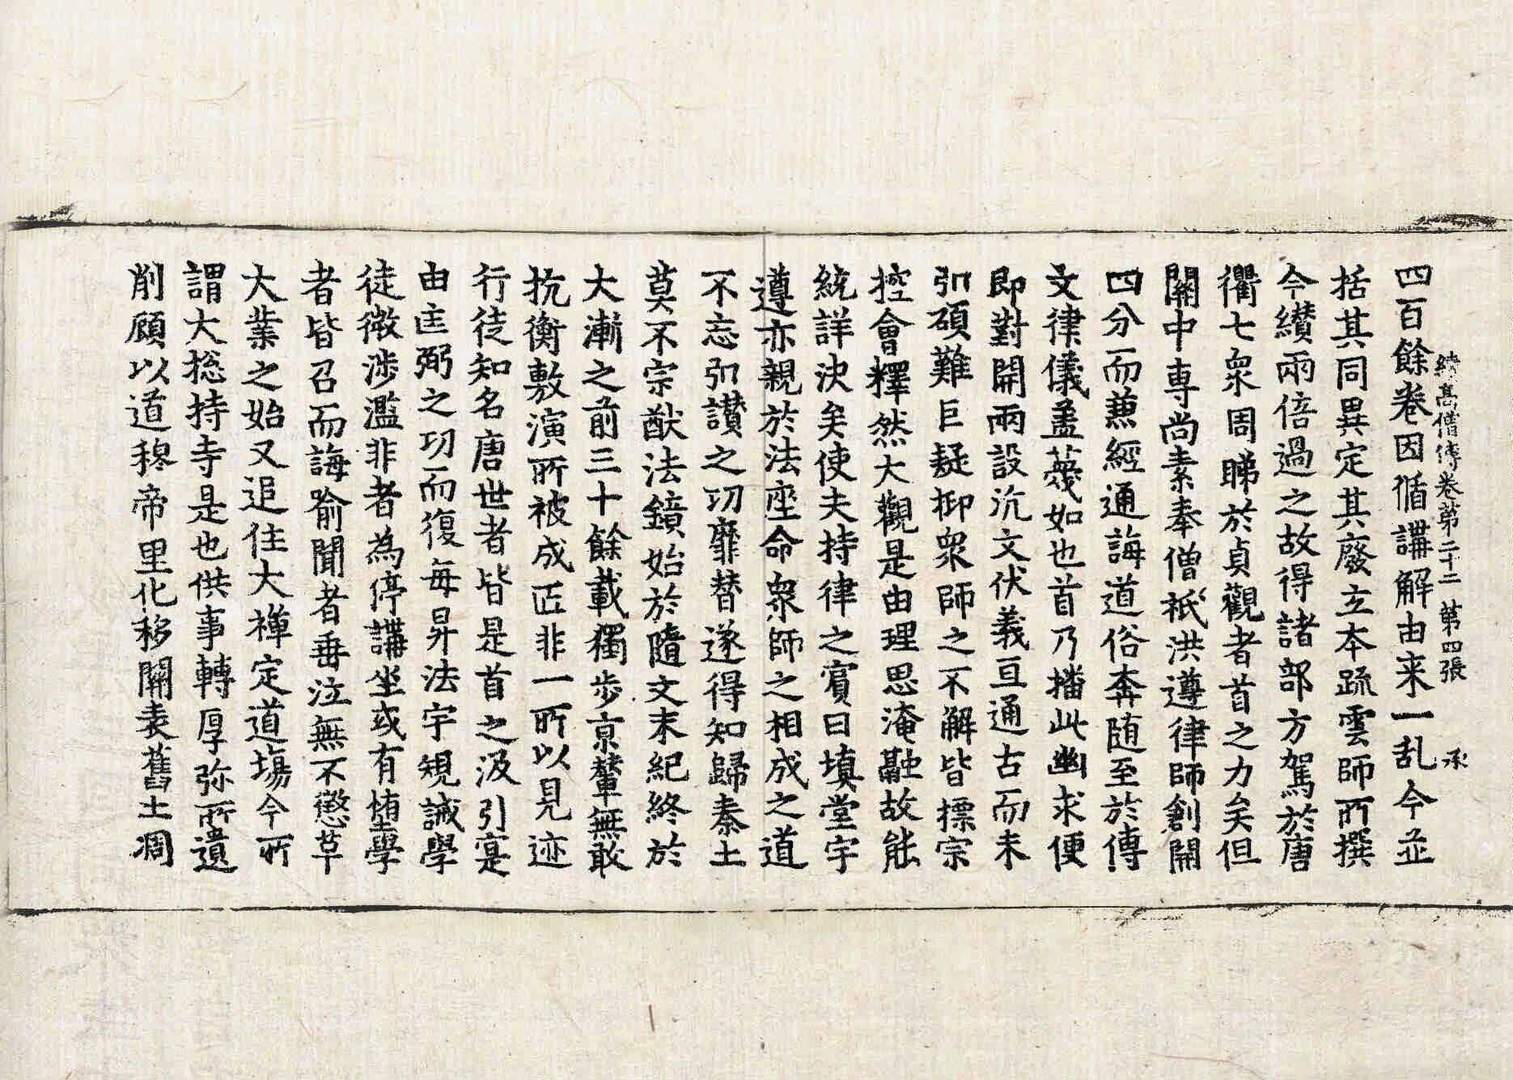 四百餘卷因循講解由来一乱今並
續高僧傳卷第二十二 第四張 承
括其同異定其廢立本疏雲師所撰
今纉兩倍過之故得諸部方駕於唐
衢七衆周睇於貞觀者首之力矣但
關中專尚素奉僧祇洪遵律師創開
四分而蒹經通誨道俗奔随至於傳
文律儀盖蔑如也首乃播此幽求便
即對開兩設沉文伏義亘通古而未
引碩難巨疑抑衆師之不解皆摽宗
控會釋然大觀是由理思淹融故能
統詳決矣使夫持律之賓日填堂宇
遵亦親於法座命衆師之相成之道
不忘引讃之功靡替遂得知歸秦土
莫不宗猷法鏡始於隨文末紀終於
大漸之前三十餘載獨步京輦無敢
抗衡敷演所被成匠非一所以見迹
行徒知名唐世者皆是首之汲引寔
由匡弼之功而復每昇法宇規誡學
徒微涉濫非者為停講坐或有堕學
者皆召而誨喻聞者垂泣無不懲革
大業之始又追住大禅定道場今所
謂大捴持寺是也供事轉厚弥所遺
削顧以道穆帝里化移關表舊土凋